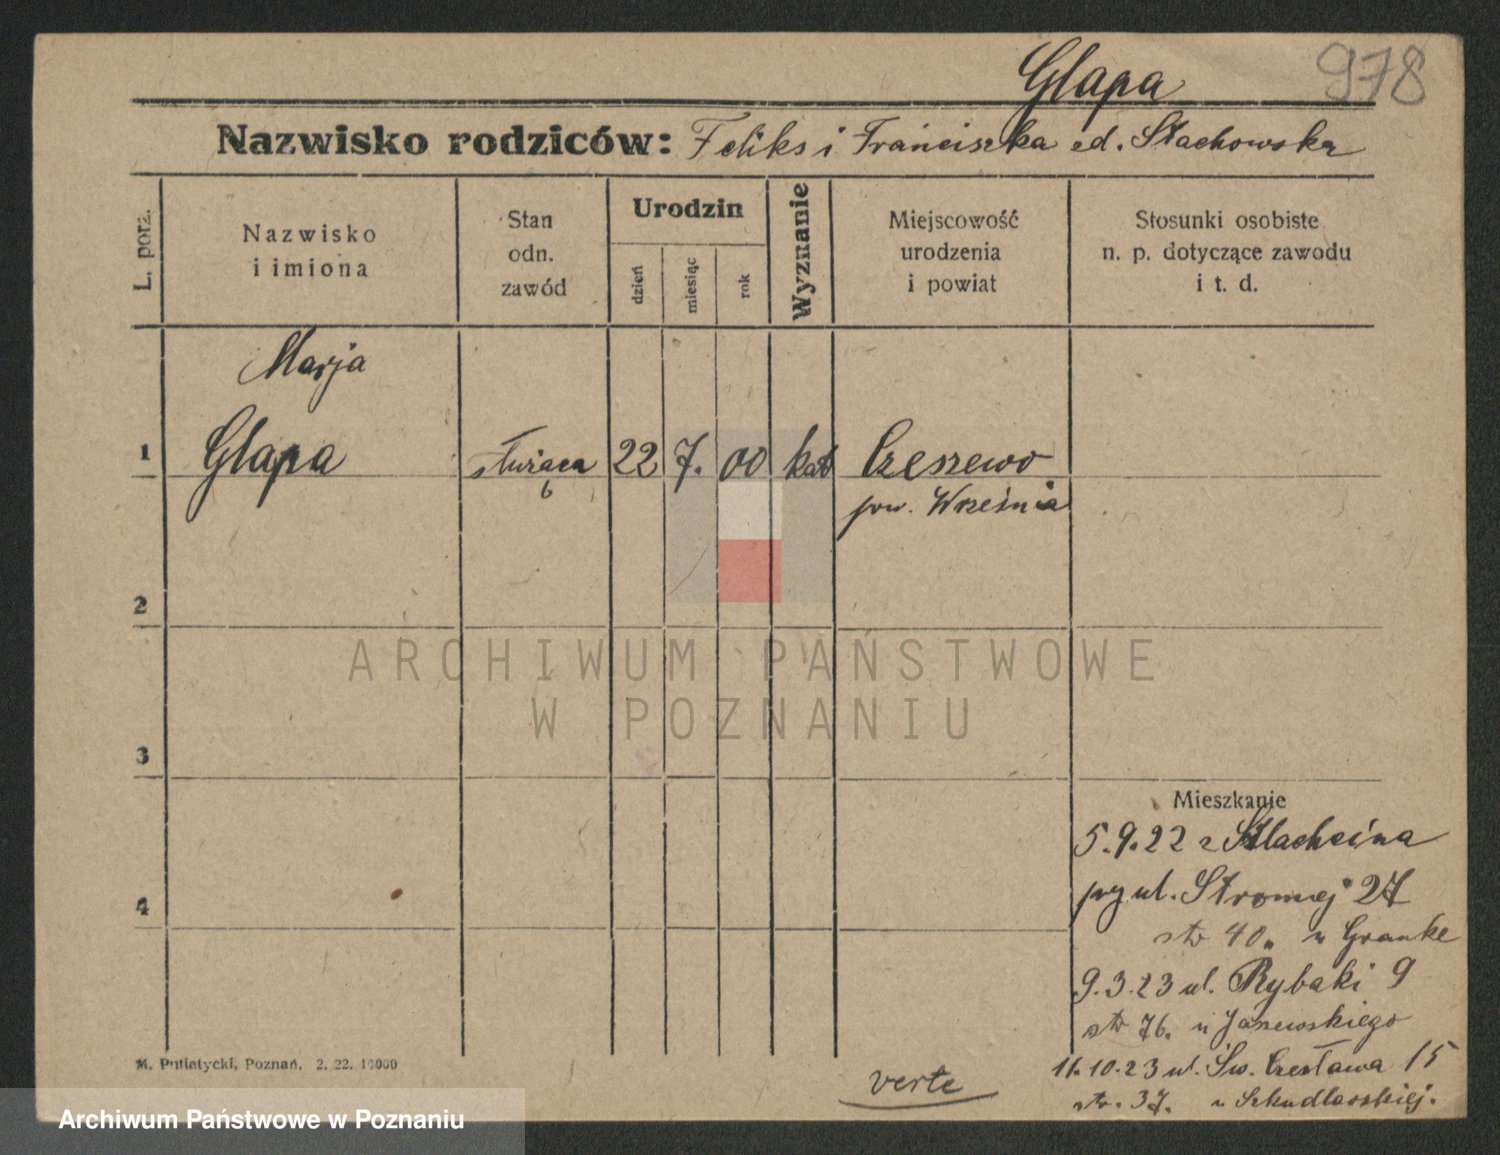 Glapa 978
Nazwisko rodziców: Feliks i Franciszka zd. Stachowska
L. porz.
Nazwisko
i imiona
Stan
odn.
zawód
Urodzin
dzień
miesiąc
rok
Wyznanie
Miejscowość
urodzenia
i powiat
Stosunki osobiste
n. p. dotyczące zawodu
i t. d.
Marja
1 Glapa służąca 22 7. 00 kat Czeszewo
pow. Września
2
ARCHIWUM PAŃSTWOWE
W POZNANIU
3
Mieszkanie
5.9.22 z Szlachcina
przy ul. Stromej 27
4
str 40. u Granke
9.3.23 ul. Rybaki 9
str 76. u Janewskiego
M. Putiatycki, Poznań. 2. 22. 10000
11.10.23 ul. Św. Czesława 15
verte
str. 37. u Szkudlarskiej.
Archiwum Państwowe w Poznaniu